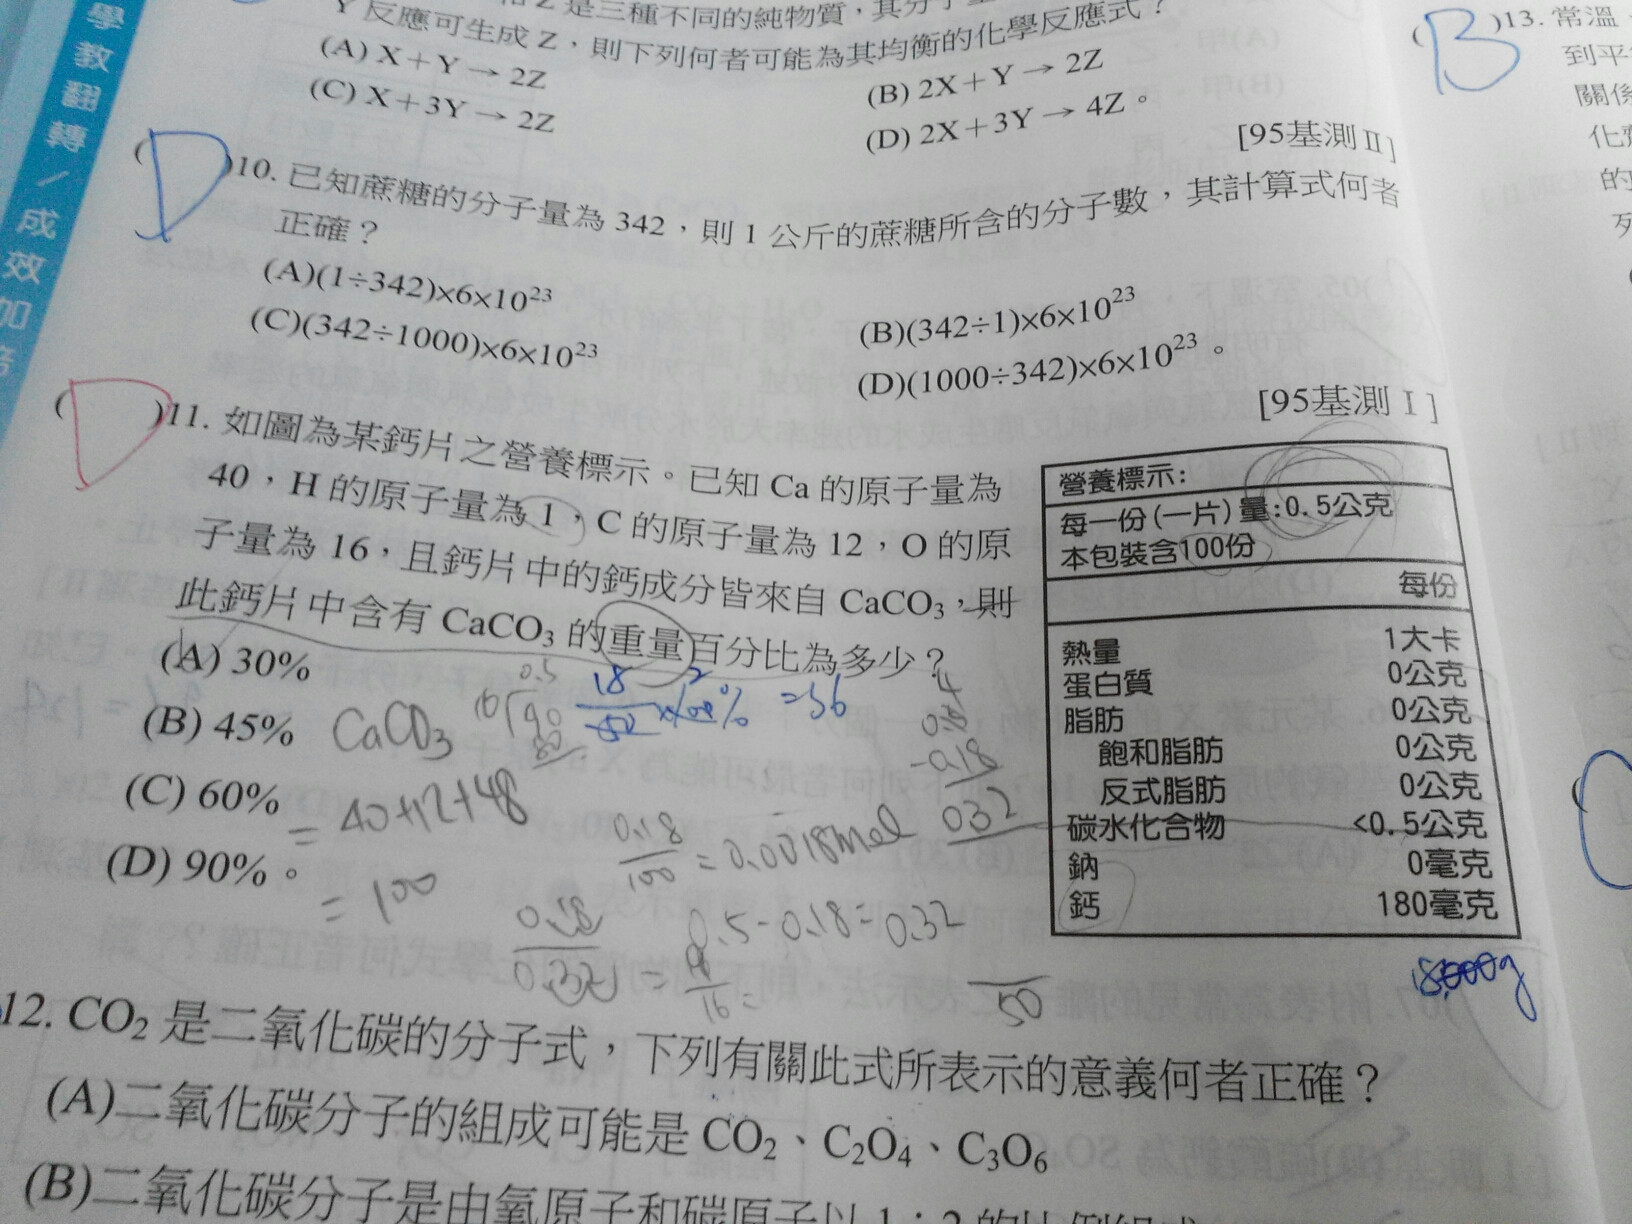 學教翻轉/成效加
Z是三種不同的純物質,其分子量
Y反應可生成Z,則下列何者可能為其均衡的化學反應式?
(A) X+Y→2Z
(B) 2X+Y→2Z
(C) X+3Y→2Z
(D) 2X+3Y→4Z。
[95基測II]
(D)10. 已知蔗糖的分子量為342,則1公斤的蔗糖所含的分子數,其計算式何者
正確?
(A)(1÷342)×6×10²³
(B)(342÷1)×6×10²³
(C)(342÷1000)×6×10²³
(D)(1000÷342)×6×10²³。
[95基測I]
(D)11. 如圖為某鈣片之營養標示。已知Ca的原子量為
40,H的原子量為1,C的原子量為12,O的原
子量為16,且鈣片中的鈣成分皆來自CaCO₃,則
此鈣片中含有CaCO₃的重量百分比為多少?
(A) 30%
(B) 45%
(C) 60%
(D) 90%。
CaCO3
= 40+12+48
= 100
0.5
18
50
×100%
=36
0.18/100 = 0.0018mol
-0.18
0.32
0.5-0.18=0.32
0.18/0.32 =
16 =
50
營養標示:
每一份(一片)量:0.5公克
本包裝含100份
每份
熱量 1大卡
蛋白質 0公克
脂肪 0公克
飽和脂肪 0公克
反式脂肪 0公克
碳水化合物 <0.5公克
鈉 0毫克
鈣 180毫克
12. CO₂是二氧化碳的分子式,下列有關此式所表示的意義何者正確?
(A)二氧化碳分子的組成可能是CO₂、C₂O₄、C₃O₆
(B)二氧化碳分子是由氧原子和碳原子以1:2的比例組成
(B)13. 常溫
到平
關係
化
的
列